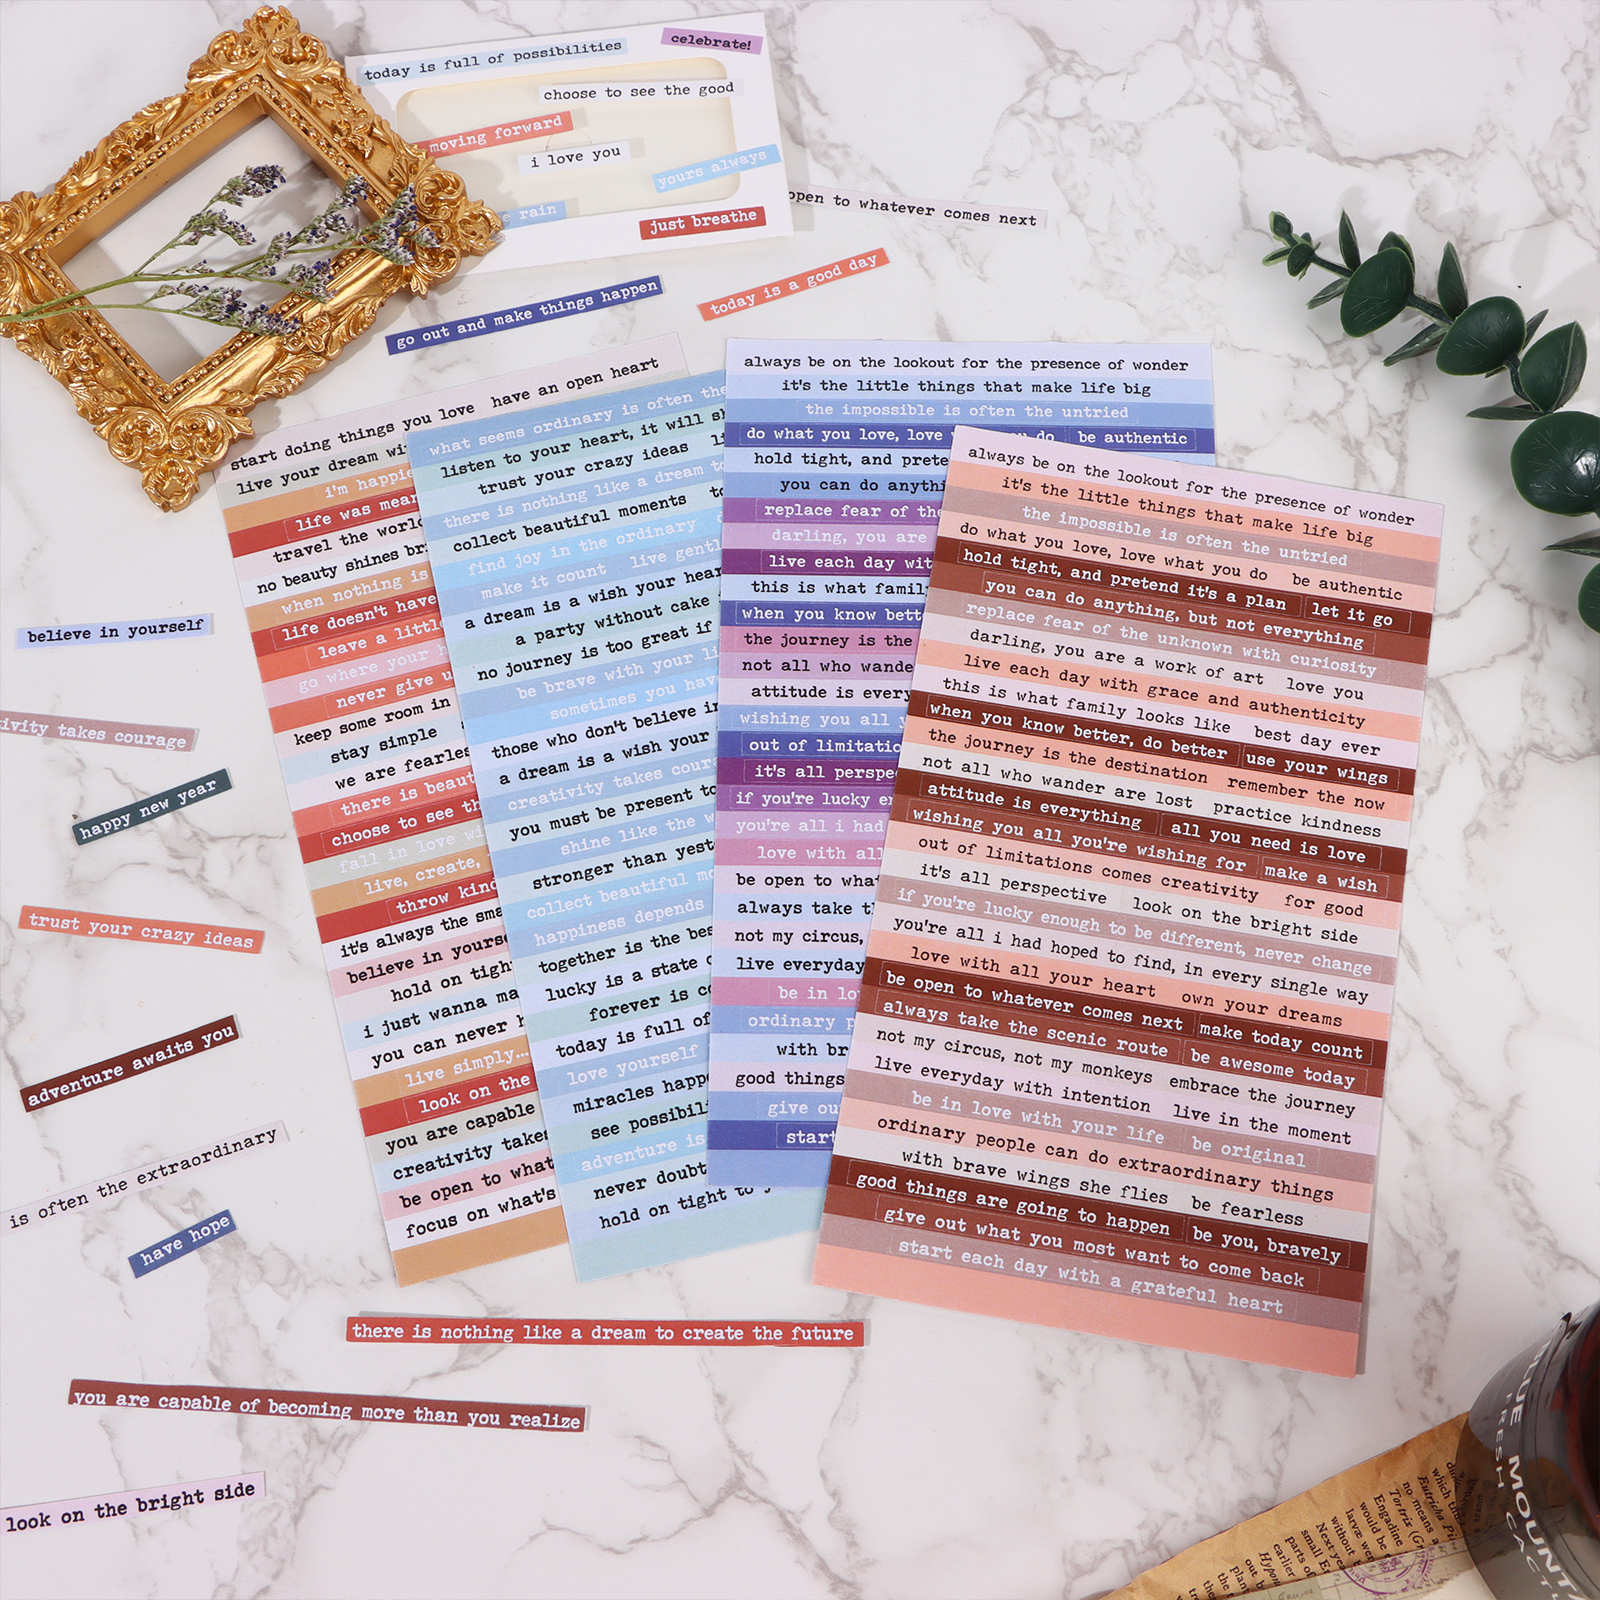 today is full of possibilities
celebrate!
choose to see the good
moving forward
i love you
yours always
rain
just breathe
open to whatever comes next
today is a good day
go out and make things happen
believe in yourself
takes courage
happy new year
trust your crazy ideas
adventure awaits you
is often the extraordinary
have hope
there is nothing like a dream to create the future
you are capable of becoming more than you realize
look on the bright side
start doing things you love have an open heart
live your dream
i'm
life was
travel the world
no beauty shines
when nothing is
life doesn't have
leave a little
go where your
never give
keep some room in
stay simple
we are
there is
choose to see
fall in love
live, create,
throw
it's always the
believe in
hold on
i just wanna
you can never
live simply...
look on the
you are capable
creativity
be open to what
focus on what's
what seems ordinary is often the
listen to your heart, it will
trust your crazy ideas
there is nothing like a dream to
collect beautiful moments
find joy in the ordinary
make it count live
a dream is a wish your
a party without cake
no journey is too great if
be brave with your
sometimes you
those who don't believe in
a dream is a wish your
creativity takes
you must be present to
shine like the
stronger than
collect beautiful
happiness depends
together is the
lucky is a state
forever is
today is full of
love yourself
miracles
see
adventure is
never doubt
hold on tight to
always be on the lookout for the presence of wonder
it's the little things that make life big
the impossible is often the untried
do what you love, love do be authentic
hold tight, and
you can do
replace fear of
darling, you are
live each day
this is what
when you know
the journey is the
not all who
attitude is
wishing you all
out of
it's all
if you're lucky
you're all i had
love with all
be open to
always take
not my circus,
live everyday
be in
ordinary
with
good things
give
start
always be on the lookout for the presence of wonder
it's the little things that make life big
the impossible is often the untried
do what you love, love what you do be authentic
hold tight, and pretend it's a plan let it go
you can do anything, but not everything
replace fear of the unknown with curiosity
darling, you are a work of art love you
live each day with grace and authenticity
this is what family looks like best day ever
when you know better, do better use your wings
the journey is the destination remember the now
not all who wander are lost practice kindness
attitude is everything all you need is love
wishing you all you're wishing for make a wish
out of limitations comes creativity for good
it's all perspective look on the bright side
if you're lucky enough to be different, never change
you're all i had hoped to find, in every single way
love with all your heart own your dreams
be open to whatever comes next make today count
always take the scenic route be awesome today
not my circus, not my monkeys embrace the journey
live everyday with intention live in the moment
be in love with your life be original
ordinary people can do extraordinary things
with brave wings she flies be fearless
good things are going to happen be you, bravely
give out what you most want to come back
start each day with a grateful heart
FRESH